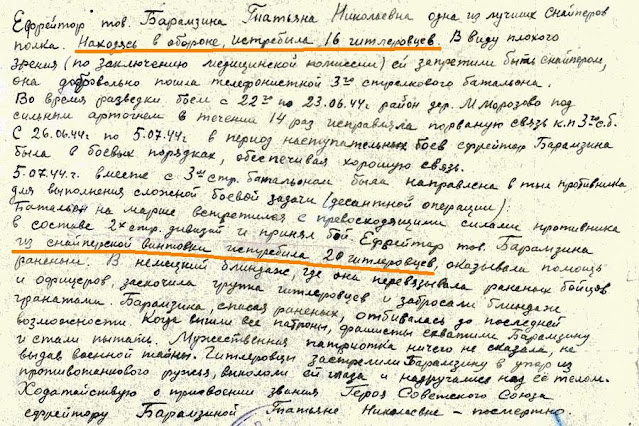 Ефрейтор тов. Барамзина Татьяна Николаевна одна из лучших снайперов
полка. Находясь в обороне, истребила 16 гитлеровцев. В виду плохого
зрения (по заключению медицинской комиссии) ей запретили быть снайпером,
она добровольно пошла телефонисткой 3го стрелкового батальона.
Во время разведки боем с 22го по 23.06.44г. район дер. М. Морозово под
сильным артогнем в течении 14 раз исправляла порваную связь к.п 3го с.б.
С 26.06.44г. по 5.07.44г. в период наступательных боев ефрейтор Барамзина
была в боевых порядках, обеспечивая хорошую связь.
5.07.44г. вместе с 3м стр. батальоном была направлена в тыл противника
для выполнения сложной боевой задачи (десантной операции).
Батальон на марше встретился с превосходящими силами противника
в составе 2х стр. дивизий и принял бой. Ефрейтор тов. Барамзина
из снайперской винтовки истребила 20 гитлеровцев, оказывала помощь
раненым. В немецкий блиндаж, где она перевязывала раненых бойцов
и офицеров, заскочила группа гитлеровцев и забросали блиндаж
гранатами. Барамзина, спасая раненых, отбивалась до последней
возможности. Когда вышли все патроны, фашисты схватили Барамзину
и стали пытать. Мужественная патриотка ничего не сказала, не
выдав военной тайны. Гитлеровцы застрелили Барамзину в упор из
противотанкового ружья, выкололи ей глаза и надругались над её телом.
Ходатайствую о присвоении звания Героя Советского Союза
ефрейтору Барамзиной Татьяне Николаевне – посмертно.